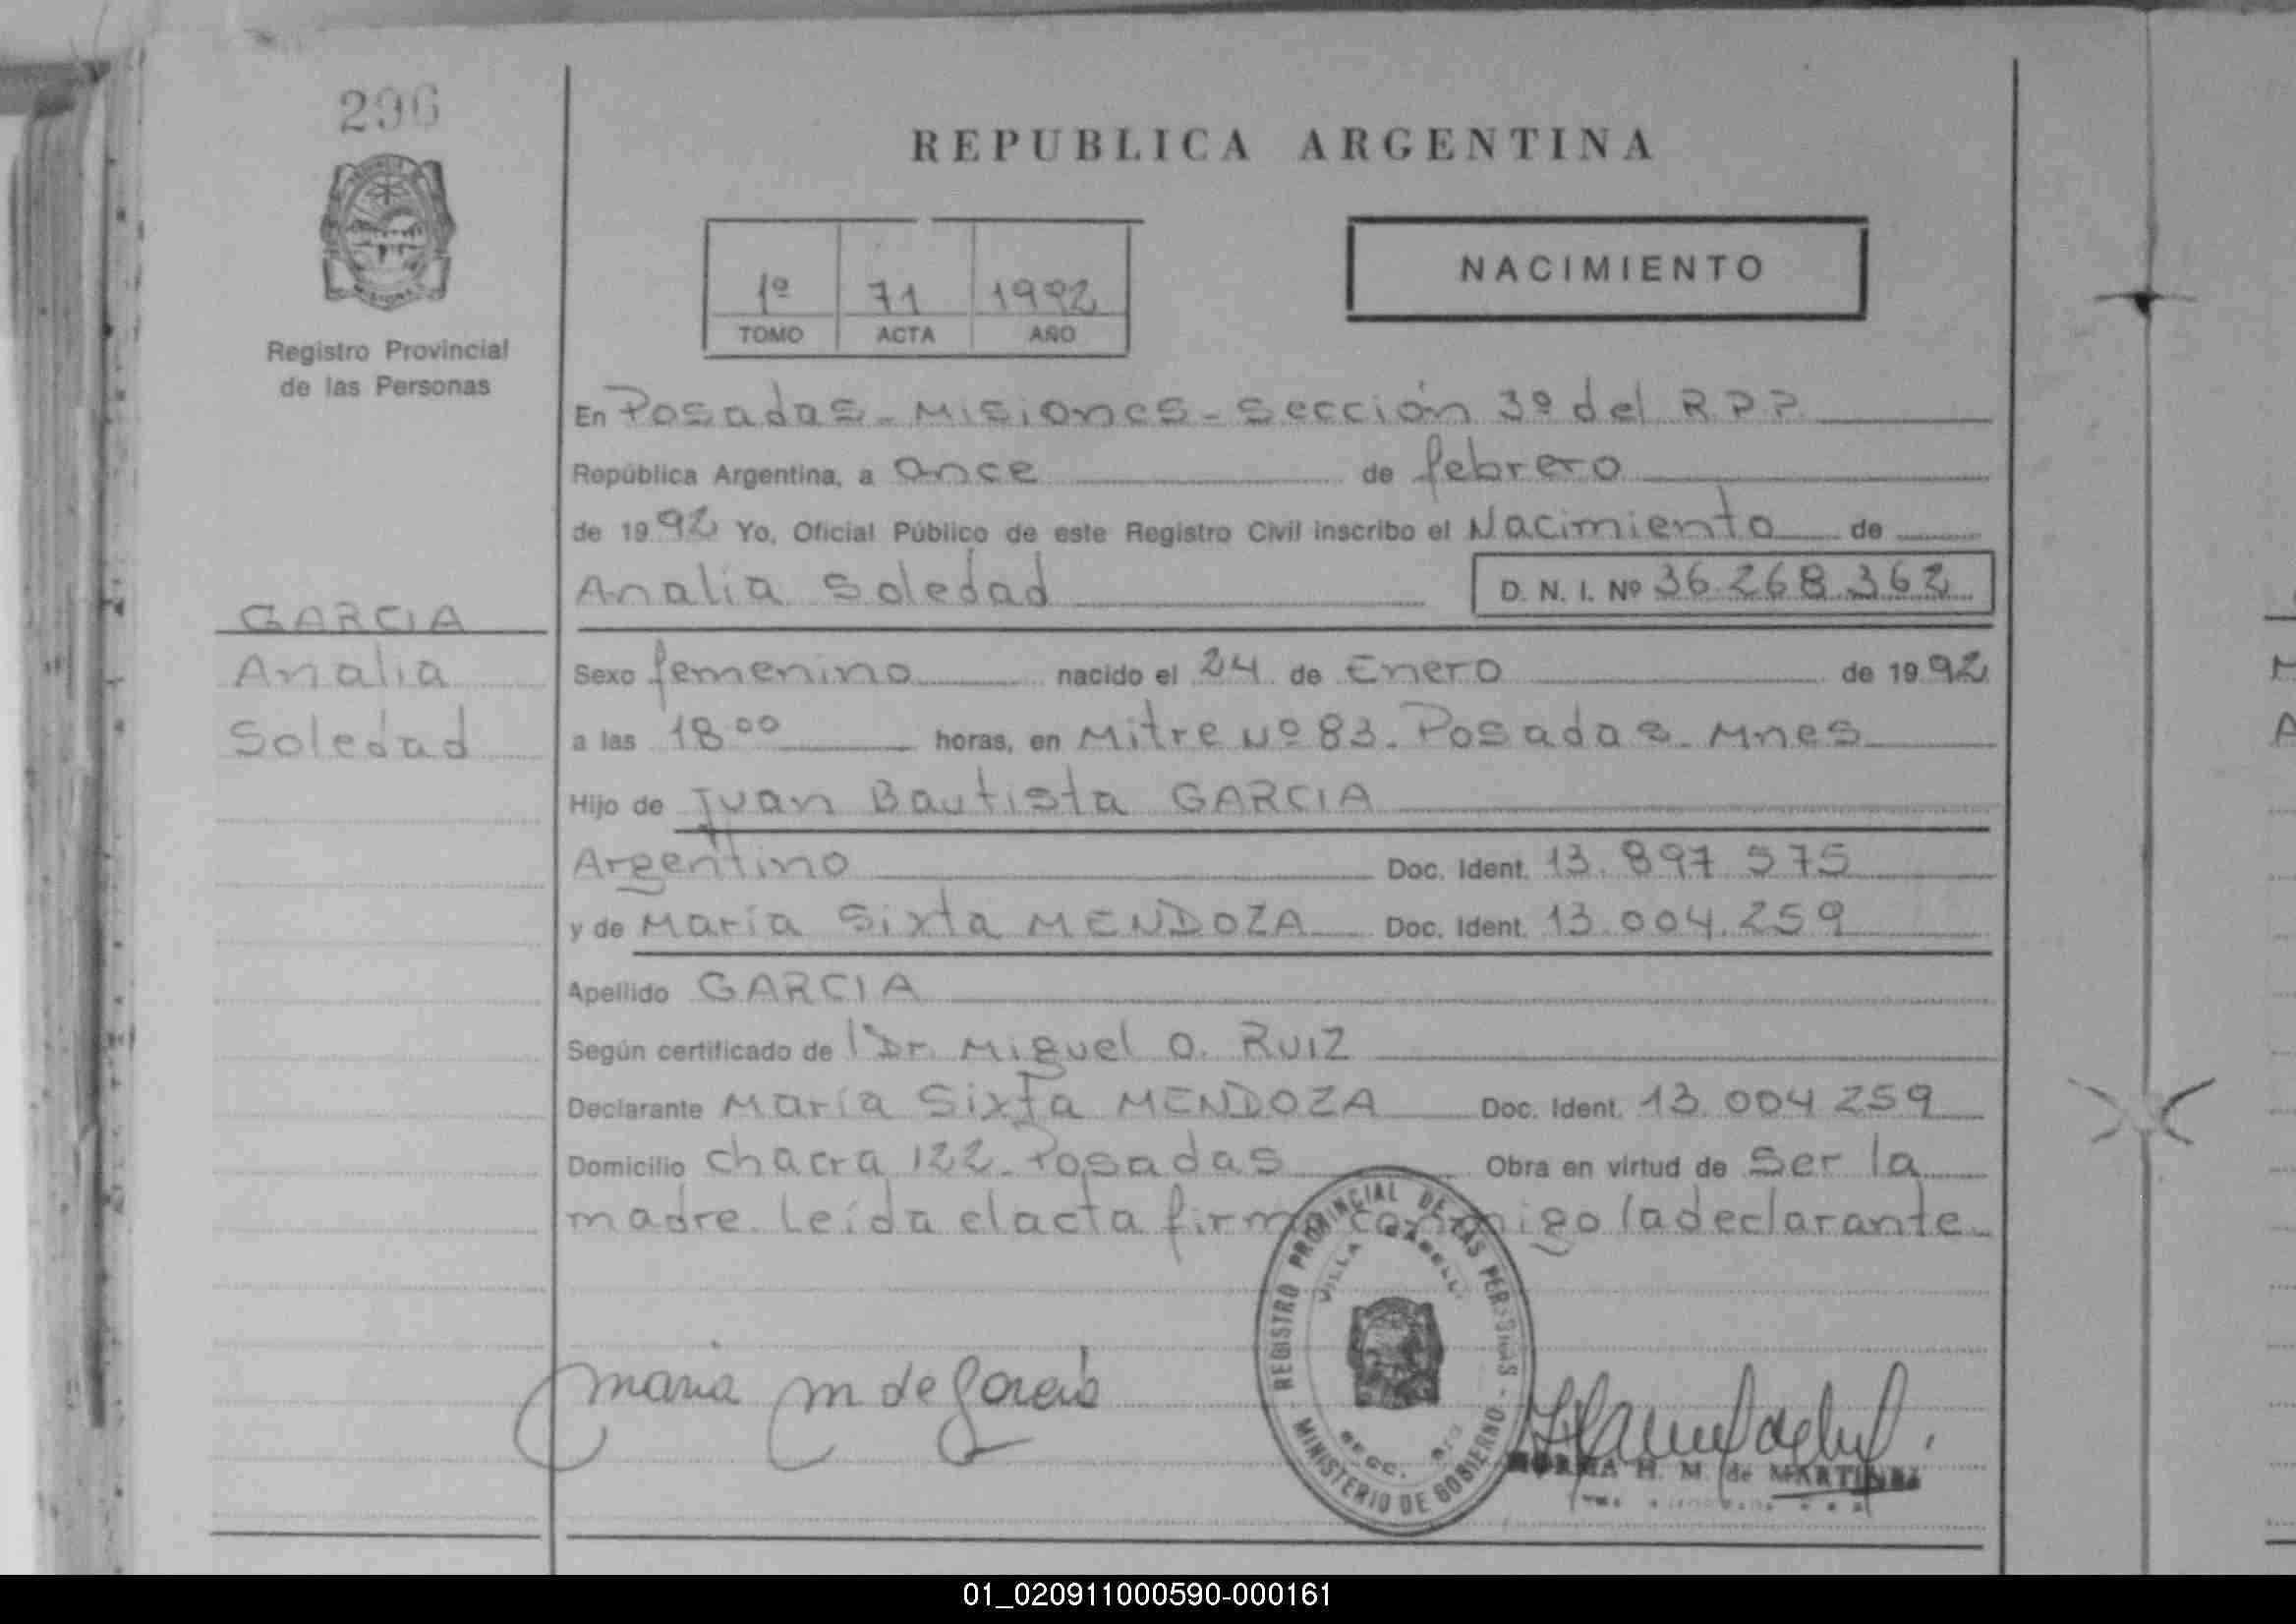 296
Registro Provincial
de las Personas
GARCIA
Analia
Soledad
REPUBLICA ARGENTINA
NACIMIENTO
1º 71 1992
TOMO ACTA AÑO
En Posadas - Misiones - Sección 3º del R P P
República Argentina, a once de febrero
de 1992 Yo, Oficial Público de este Registro Civil inscribo el Nacimiento de
Analia Soledad D. N. I. Nº 36.268.362
Sexo femenino nacido el 24 de Enero de 1992
a las 18 00 horas, en Mitre Nº 83. Posadas. Mnes
Hijo de Juan Bautista GARCIA
Argentino Doc. Ident. 13.897 575
y de María Sixta MENDOZA Doc. Ident. 13.004.259
Apellido GARCIA
Según certificado de Dr. Miguel O. RUIZ
Declarante María Sixta MENDOZA Doc. Ident. 13.004 259
Domicilio chacra 122. Posadas Obra en virtud de Ser la
madre. Leída el acta firma conmigo la declarante
REGISTRO PROVINCIAL DE LAS PERSONAS - MINISTERIO DE GOBIERNO -
VILLA
SECC.
maria m de Garcia
NORMA H. M. de MARTINEZ
01_020911000590-000161